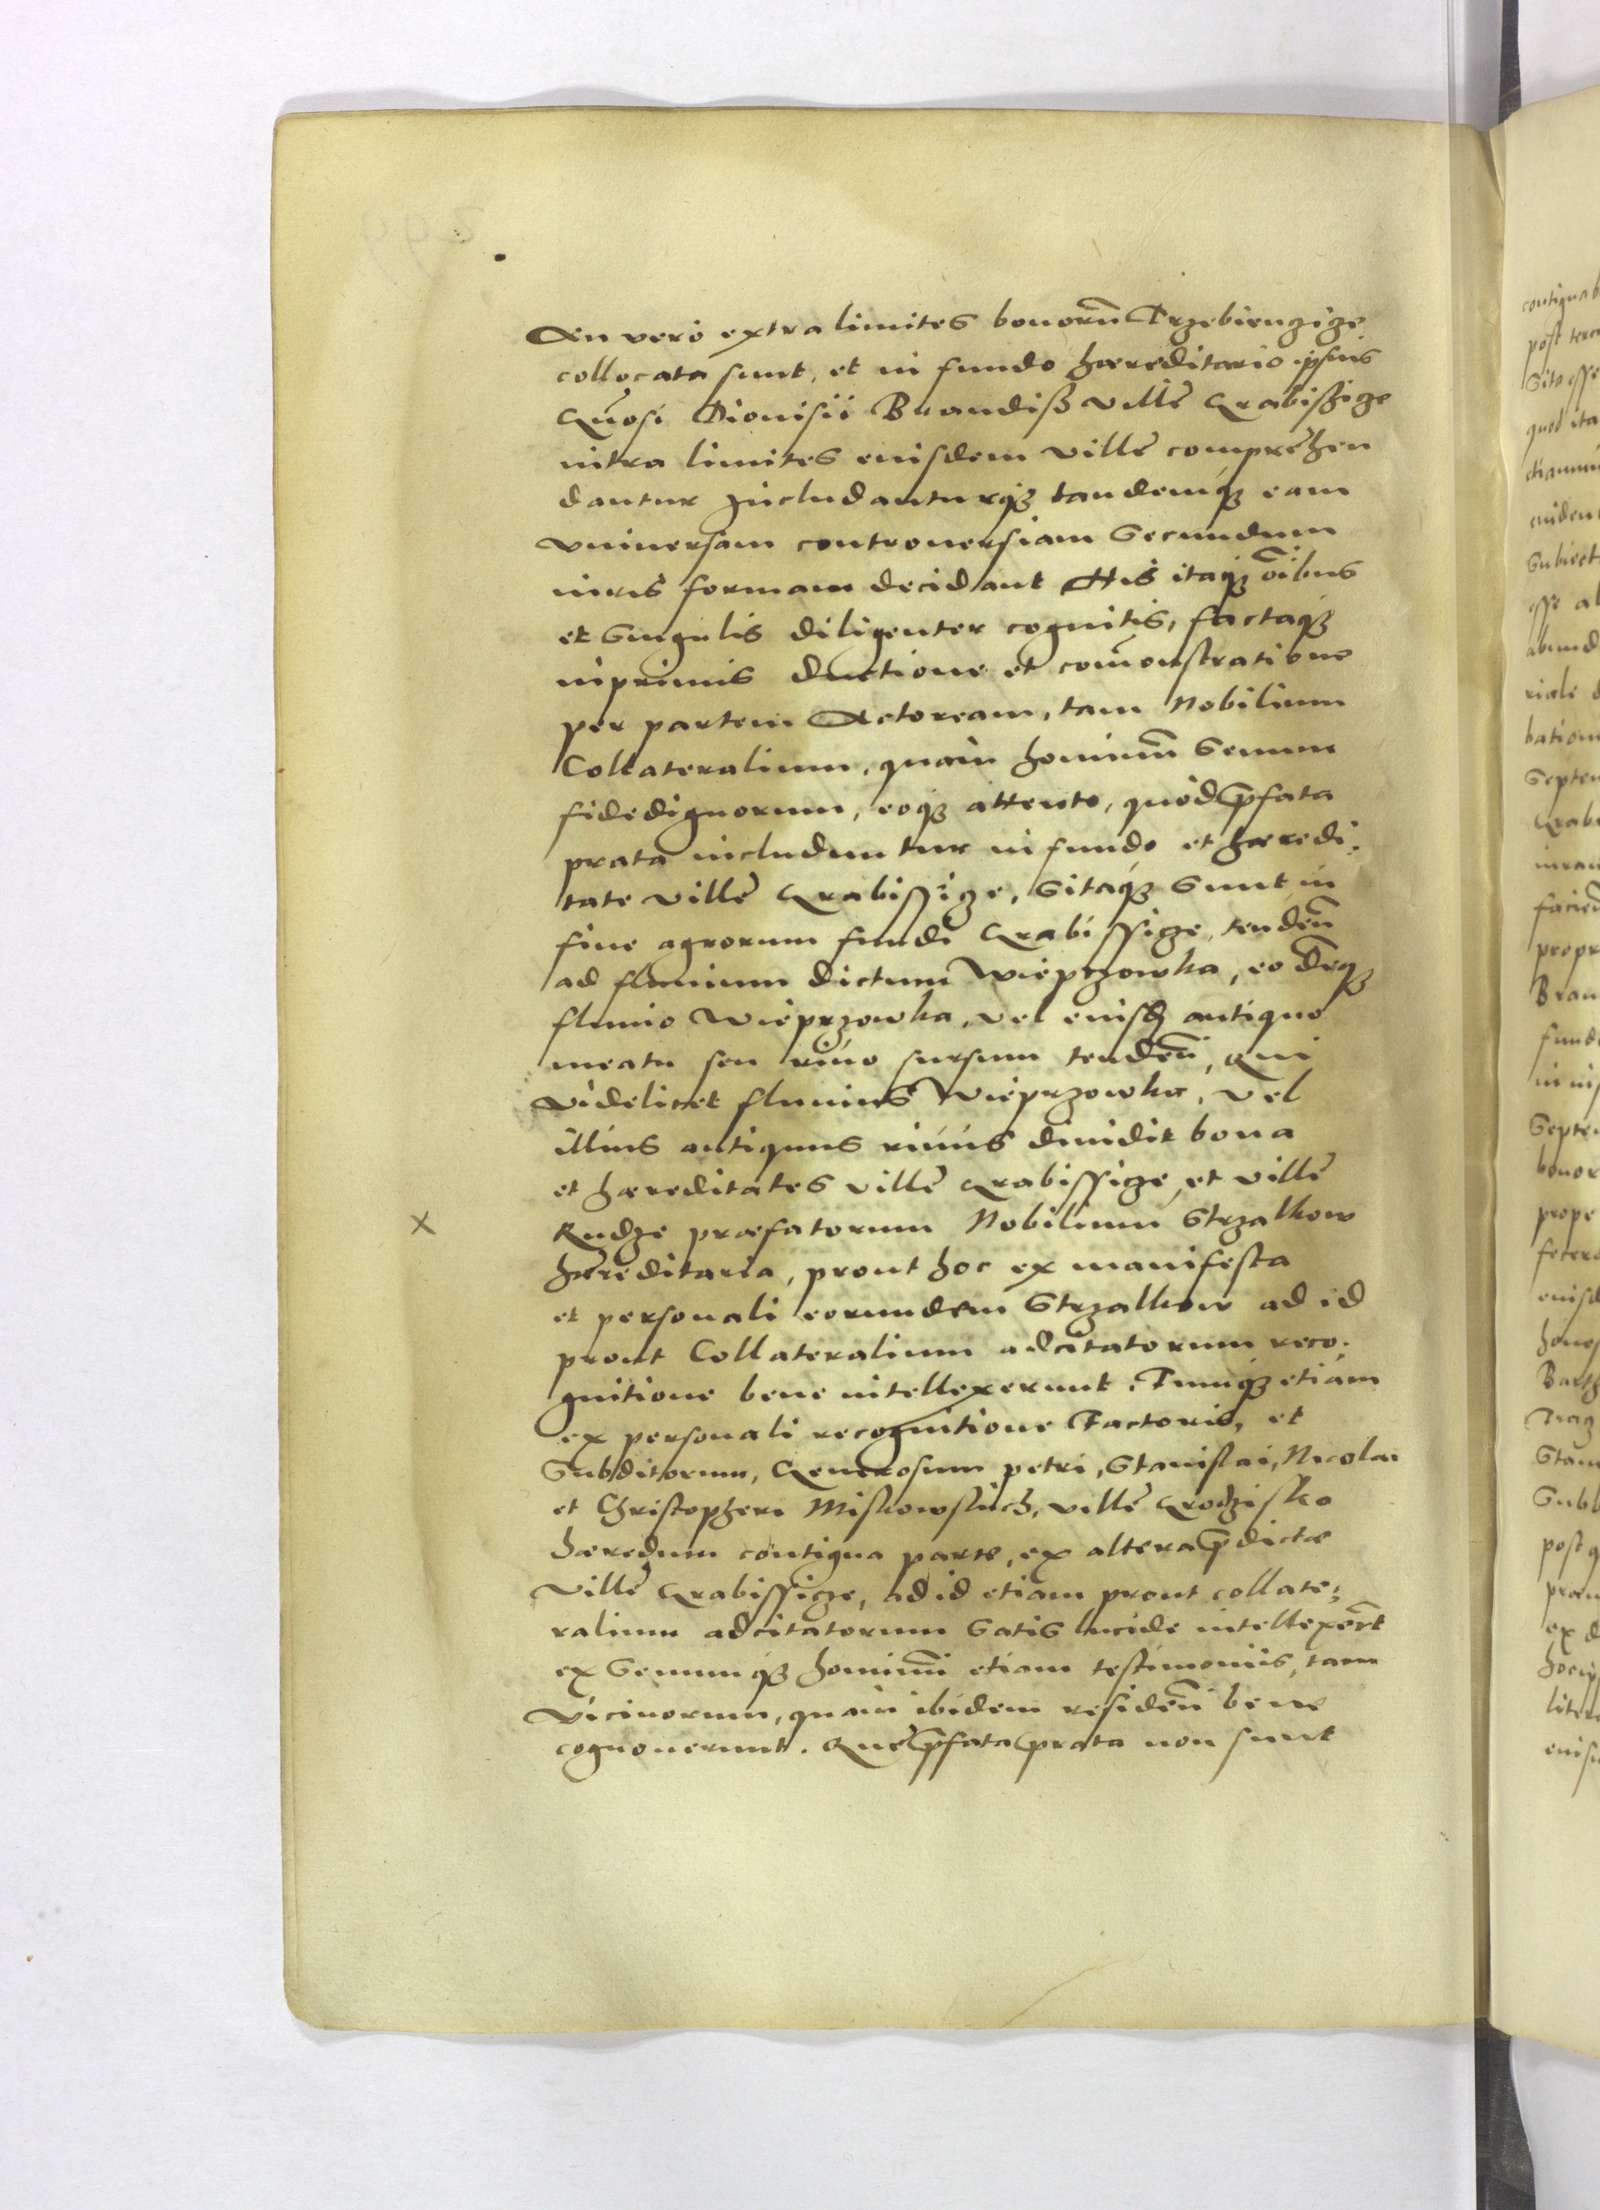 An vero extra limites bonorũ Trzebienczicze
collocata sunt, et in fundo haereditario ipsius
Gnosi Dionisii Brandisz villę Grabissicze
intra limites eiusdem villę comprehen
dantur includanturq3 tandemq3 eam
vniuersam controuersiam Secundum
iuris formam decidant His itaq3 oĩbus
et Singulis diligenter cognitis, factaq3
inprimis ductione et com̃onstratione
per partem Actoream, tam Nobilium
Collateralium, quam hominũ Senum
fidedignorum, eoq3 attento, quod p̃fata
prata includuntur in fundo et haeredi:
tate villę Grabissicze, Sitaq3 Sunt in
fine agrorum fundi Grabissicze, tendeñ
ad fluuium dictum Wieprzowka, eodẽq3
fluuio Wieprzowka, vel eiusd3 antiquo
meatu seu riuo sursum tendeñ, qui
videlicet fluuius Wieprzowka, vel
illius antiquus riuus diuidit bona
et haereditates villę Grabissicze, et villę
x Rudze praefatorum Nobilium Strzalkow
hęreditaria, prout hoc ex manifesta
et personali eorundem Strzalkow ad id
prout Collateralium adcitatorum reco.
gnitione bene intellexerunt. Tumq3 etiam
ex personali recognitione Factoris, et
Subditorum, Generosum petri, Stanislai, Nicolai
et Christopheri Miskowskich, villę Grodzisko
haeredum contigua parte, ex altera p̃dictae
villę Grabissicze, ad id etiam prout collate:
ralium adcitatorum Satis lucide intellexerũt
ex Senumq3 hominũ etiam testimoniis, tam
vicinorum, quam ibidem resideñ bene
cognouerunt. Quę p̃fata prata non sunt